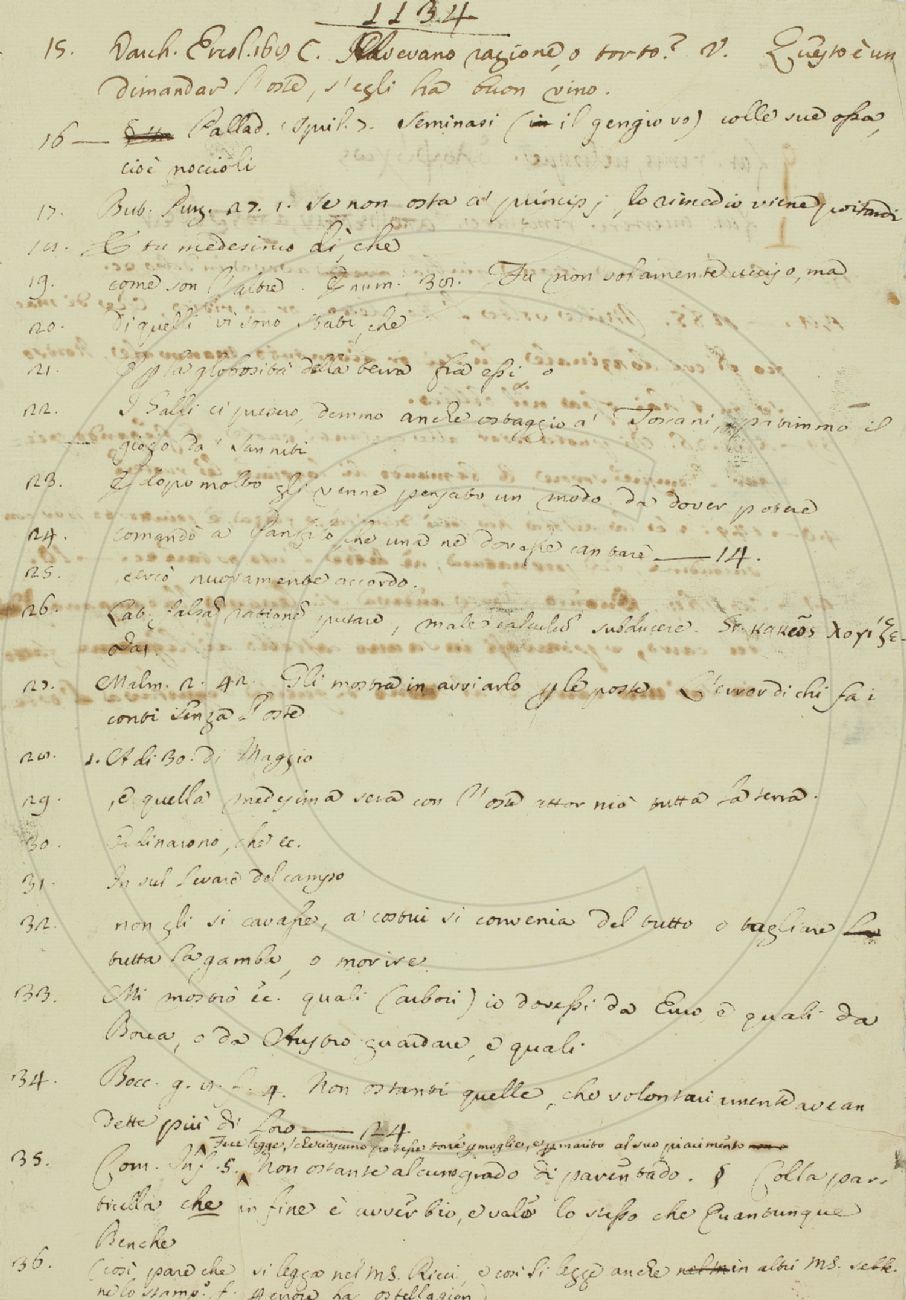 1134
15. Varch. Ercol. 169 C. Avevano ragione, o torto? V. Questo è un
dimandar l'oste, s'egli ha buon vino.
16 — Pallad. April. 7. Seminasi (in il gengiovo) colle sue ossa,
cioè noccioli
17. But. Purg. 27. 1. Se non osta a' principj, lo rimedio viene poi tardi
18. E tu medesimo di, che
19. come son l'altre. E num. 38. Fu non solamente ucciso, ma
20. Di quelli vi sono stati, che
21. E p la globosità della terra fra essi
22. I Galli ci presero, demmo anche ostaggio a' Toscani, patimmo il
giogo da' Sanniti
23. E dopo molto gli venne pensato un modo da dover potere
24. comandò a Panfilo, che una ne dovesse cantare — 14.
25. cercò nuovamente accordo.
26. Lat. falsas rationes putare, male calculos subducere. Gr. κακῶς λογίζε-
σθαι.
27. Malm. 2. 42. Gli mostra in avviarlo p le poste L'error di chi fa i
conti senza l'oste
28. 1. A dì 30. di Maggio
29. , e quella medesima sera con l'oste attorniò tutta la terra.
30. Ordinarono, che ec.
31. In sul levare del campo
32. non gli si cavasse, a costui si convenia del tutto o tagliare la
tutta la gamba, o morire.
33. Mi mostrò ec. quali (arbori) io dovessi da Euro, e quali da
Borea, o da Austro guardare, e quali
34. Bocc. g. 9. f. 4. Non ostanti quelle, che volontariamente avean
dette più di loro — 24
Fece legge, che ciascuno potesse torre p moglie, e p marito al suo piacimento
35. Com. Inf. 5. Non ostante alcun grado di parentado. § Colla par-
ticella che in fine è avverbio, e vale lo stesso che Quantunque
Benchè
36. (così pare che si legga nel MS. Ricci, e così si legge anche nel M in altri MS. sebbe-
ne lo stamp.